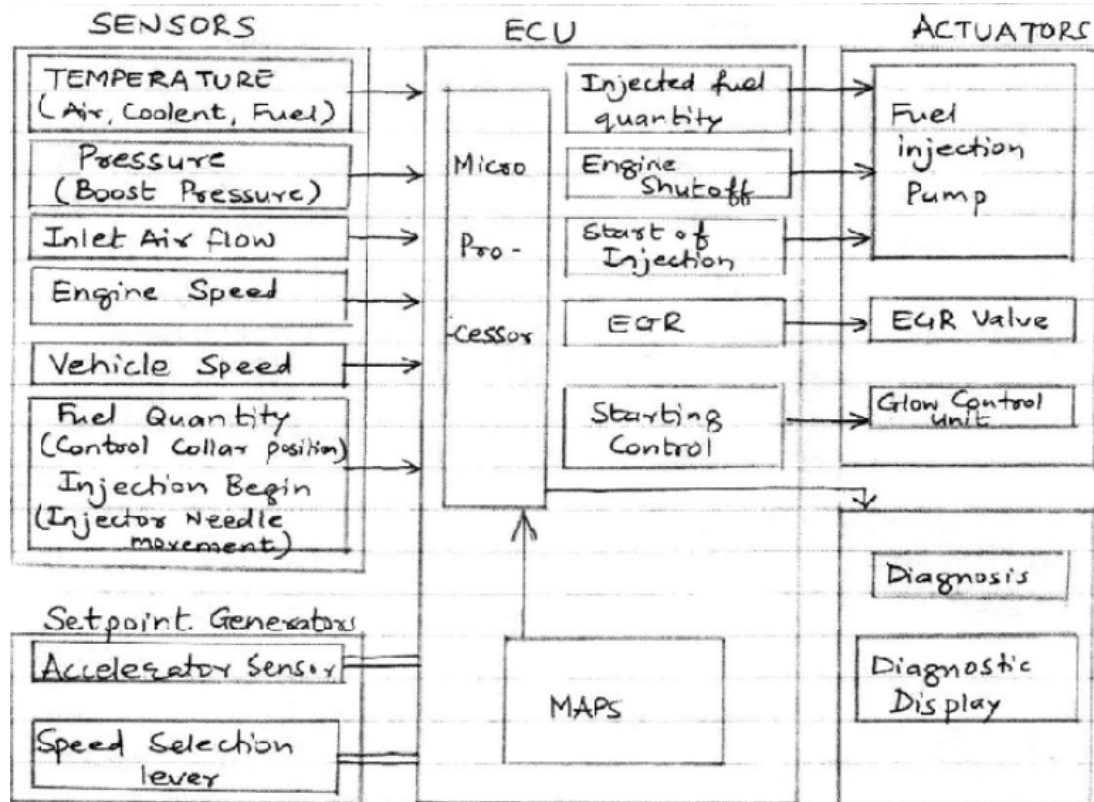 SENSORS
TEMPERATURE
(Air, Coolent, Fuel)
Pressure
(Boost Pressure)
Inlet Air flow
Engine Speed
Vehicle Speed
Fuel Quantity
(Control Collar position)
Injection Begin
(Injector Needle
movement)
Setpoint Generators
Accelerator Sensor
Speed Selection
lever
ECU
Micro
Pro -
-cessor
Injected fuel
quantity
Engine
Shutoff
Start of
Injection
EGR
Starting
Control
MAPS
ACTUATORS
Fuel
injection
Pump
EGR Valve
Glow Control
Unit
Diagnosis
Diagnostic
Display